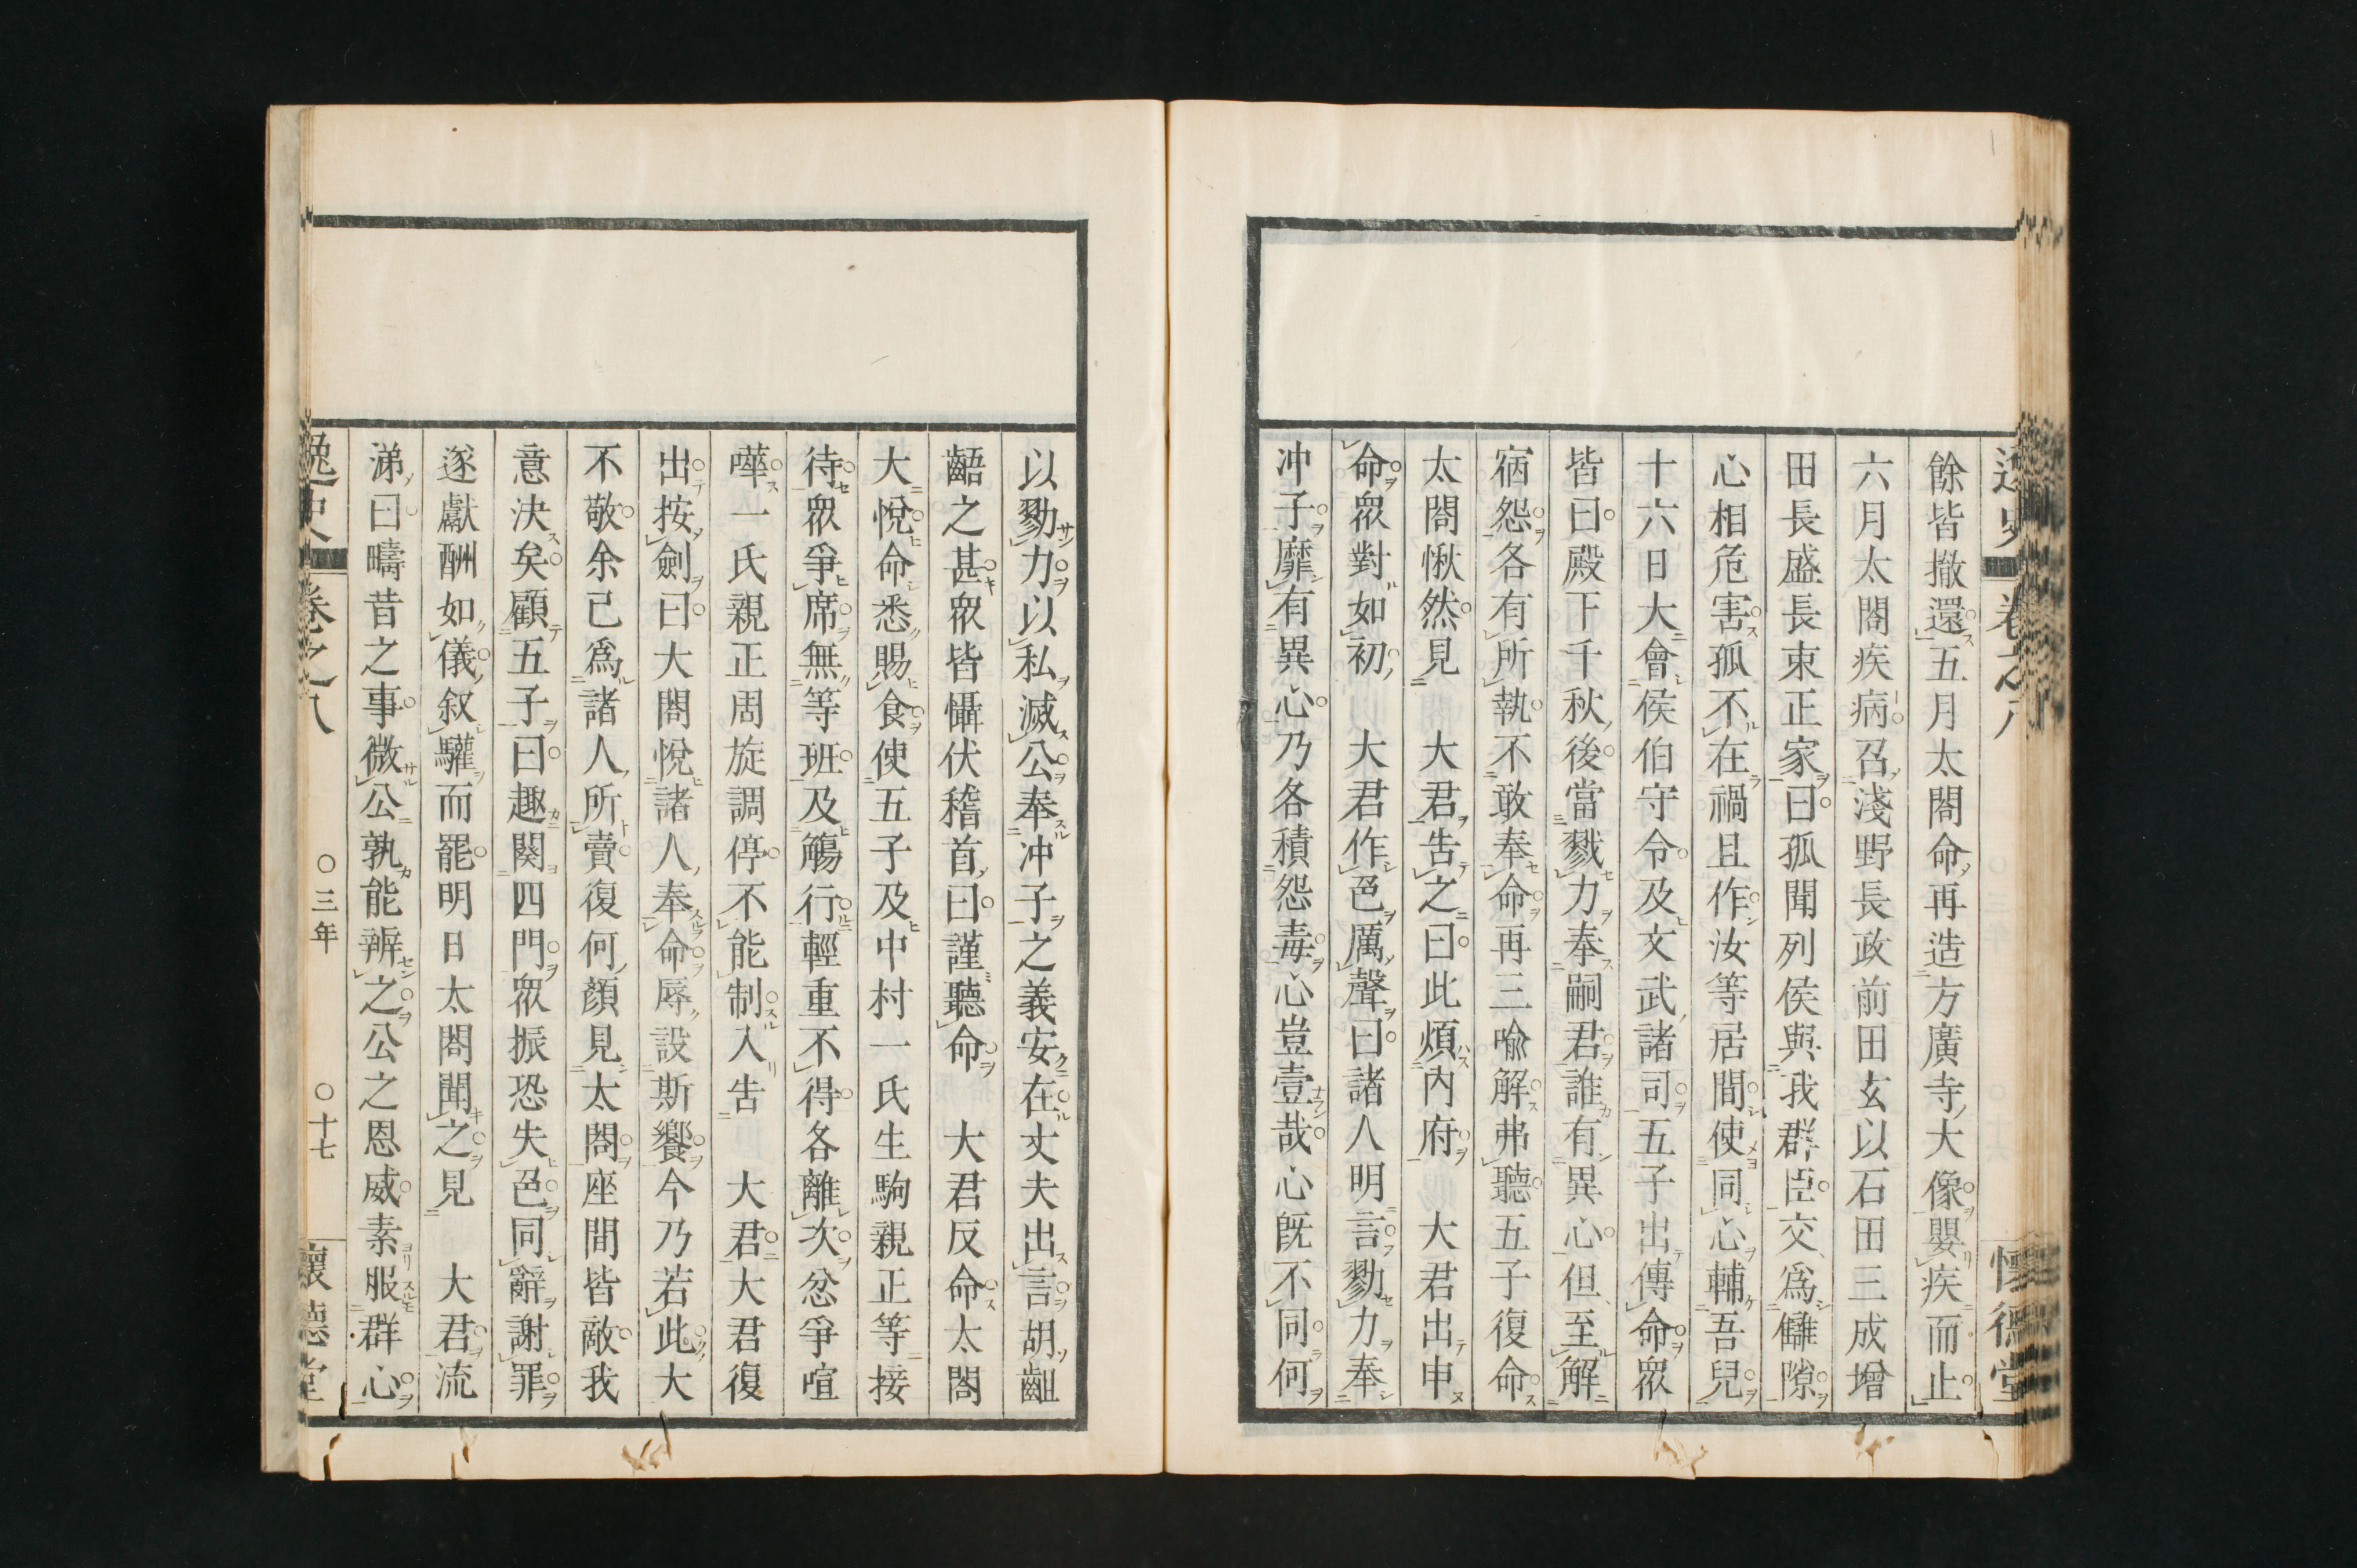 餘皆撤還五月太閤命再造方廣寺大像嬰疾而止
六月太閤疾病召淺野長政前田玄以石田三成增
田長盛長束正家曰孤聞列侯與我群臣交爲讎隙
心相危害孤不在禍且作汝等居間使同心輔吾兒
十六日大會侯伯守令及文武諸司五子出傳命眾
皆曰殿下千秋後當戮力奉嗣君誰有異心但至解
宿怨各有所執不敢奉命再三喩解弗聽五子復命
太閤愀然見　大君告之曰此煩內府　大君出申
命眾對如初　大君作色厲聲曰諸人明言勠力奉
冲子靡有異心乃各積怨毒心豈壹哉心既不同何
以勠力以私滅公奉冲子之義安在丈夫出言胡齟
齬之甚眾皆懾伏稽首曰謹聽命　大君反命太閤
大悅命悉賜食使五子及中村一氏生駒親正等接
待眾爭席無等班及觴行輕重不得各離次忿爭喧
嘩一氏親正周旋調停不能制入告　大君大君復
出按劍曰大閤悅諸人奉命辱設斯饗今乃若此大
不敬余己爲諸人所賣復何顏見太閤座間皆敵我
意決矣顧五子曰趣闋四門眾振恐失色同辭謝罪
遂獻酬如儀叙驩而罷明日太閤聞之見　大君流
涕曰疇昔之事微公孰能辨之公之恩威素服群心
逸史
卷之八
三年
十七
懷德堂